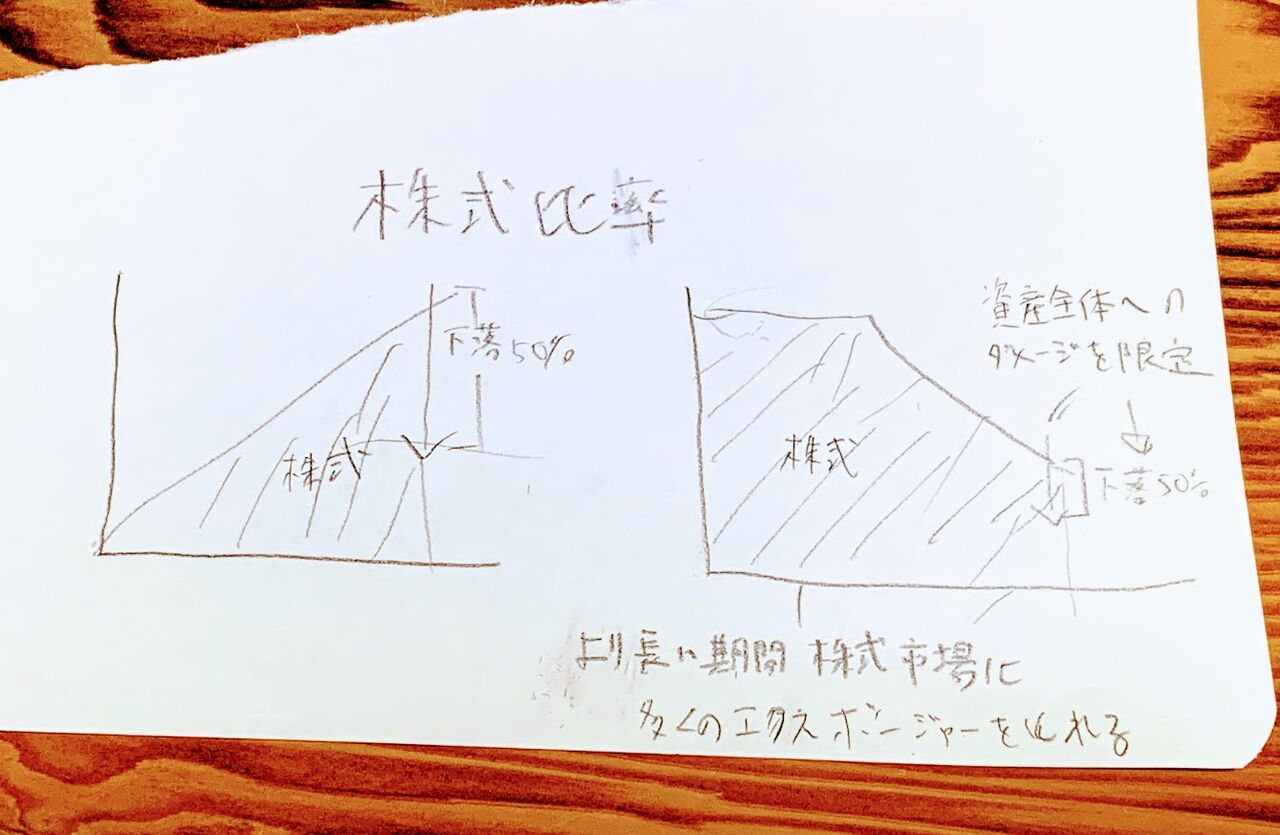 株式比率
下落50%
株式
資産全体への
ダメージを限定
株式
下落50%
より長い期間 株式市場に
多くのエクスポージャーをとれる